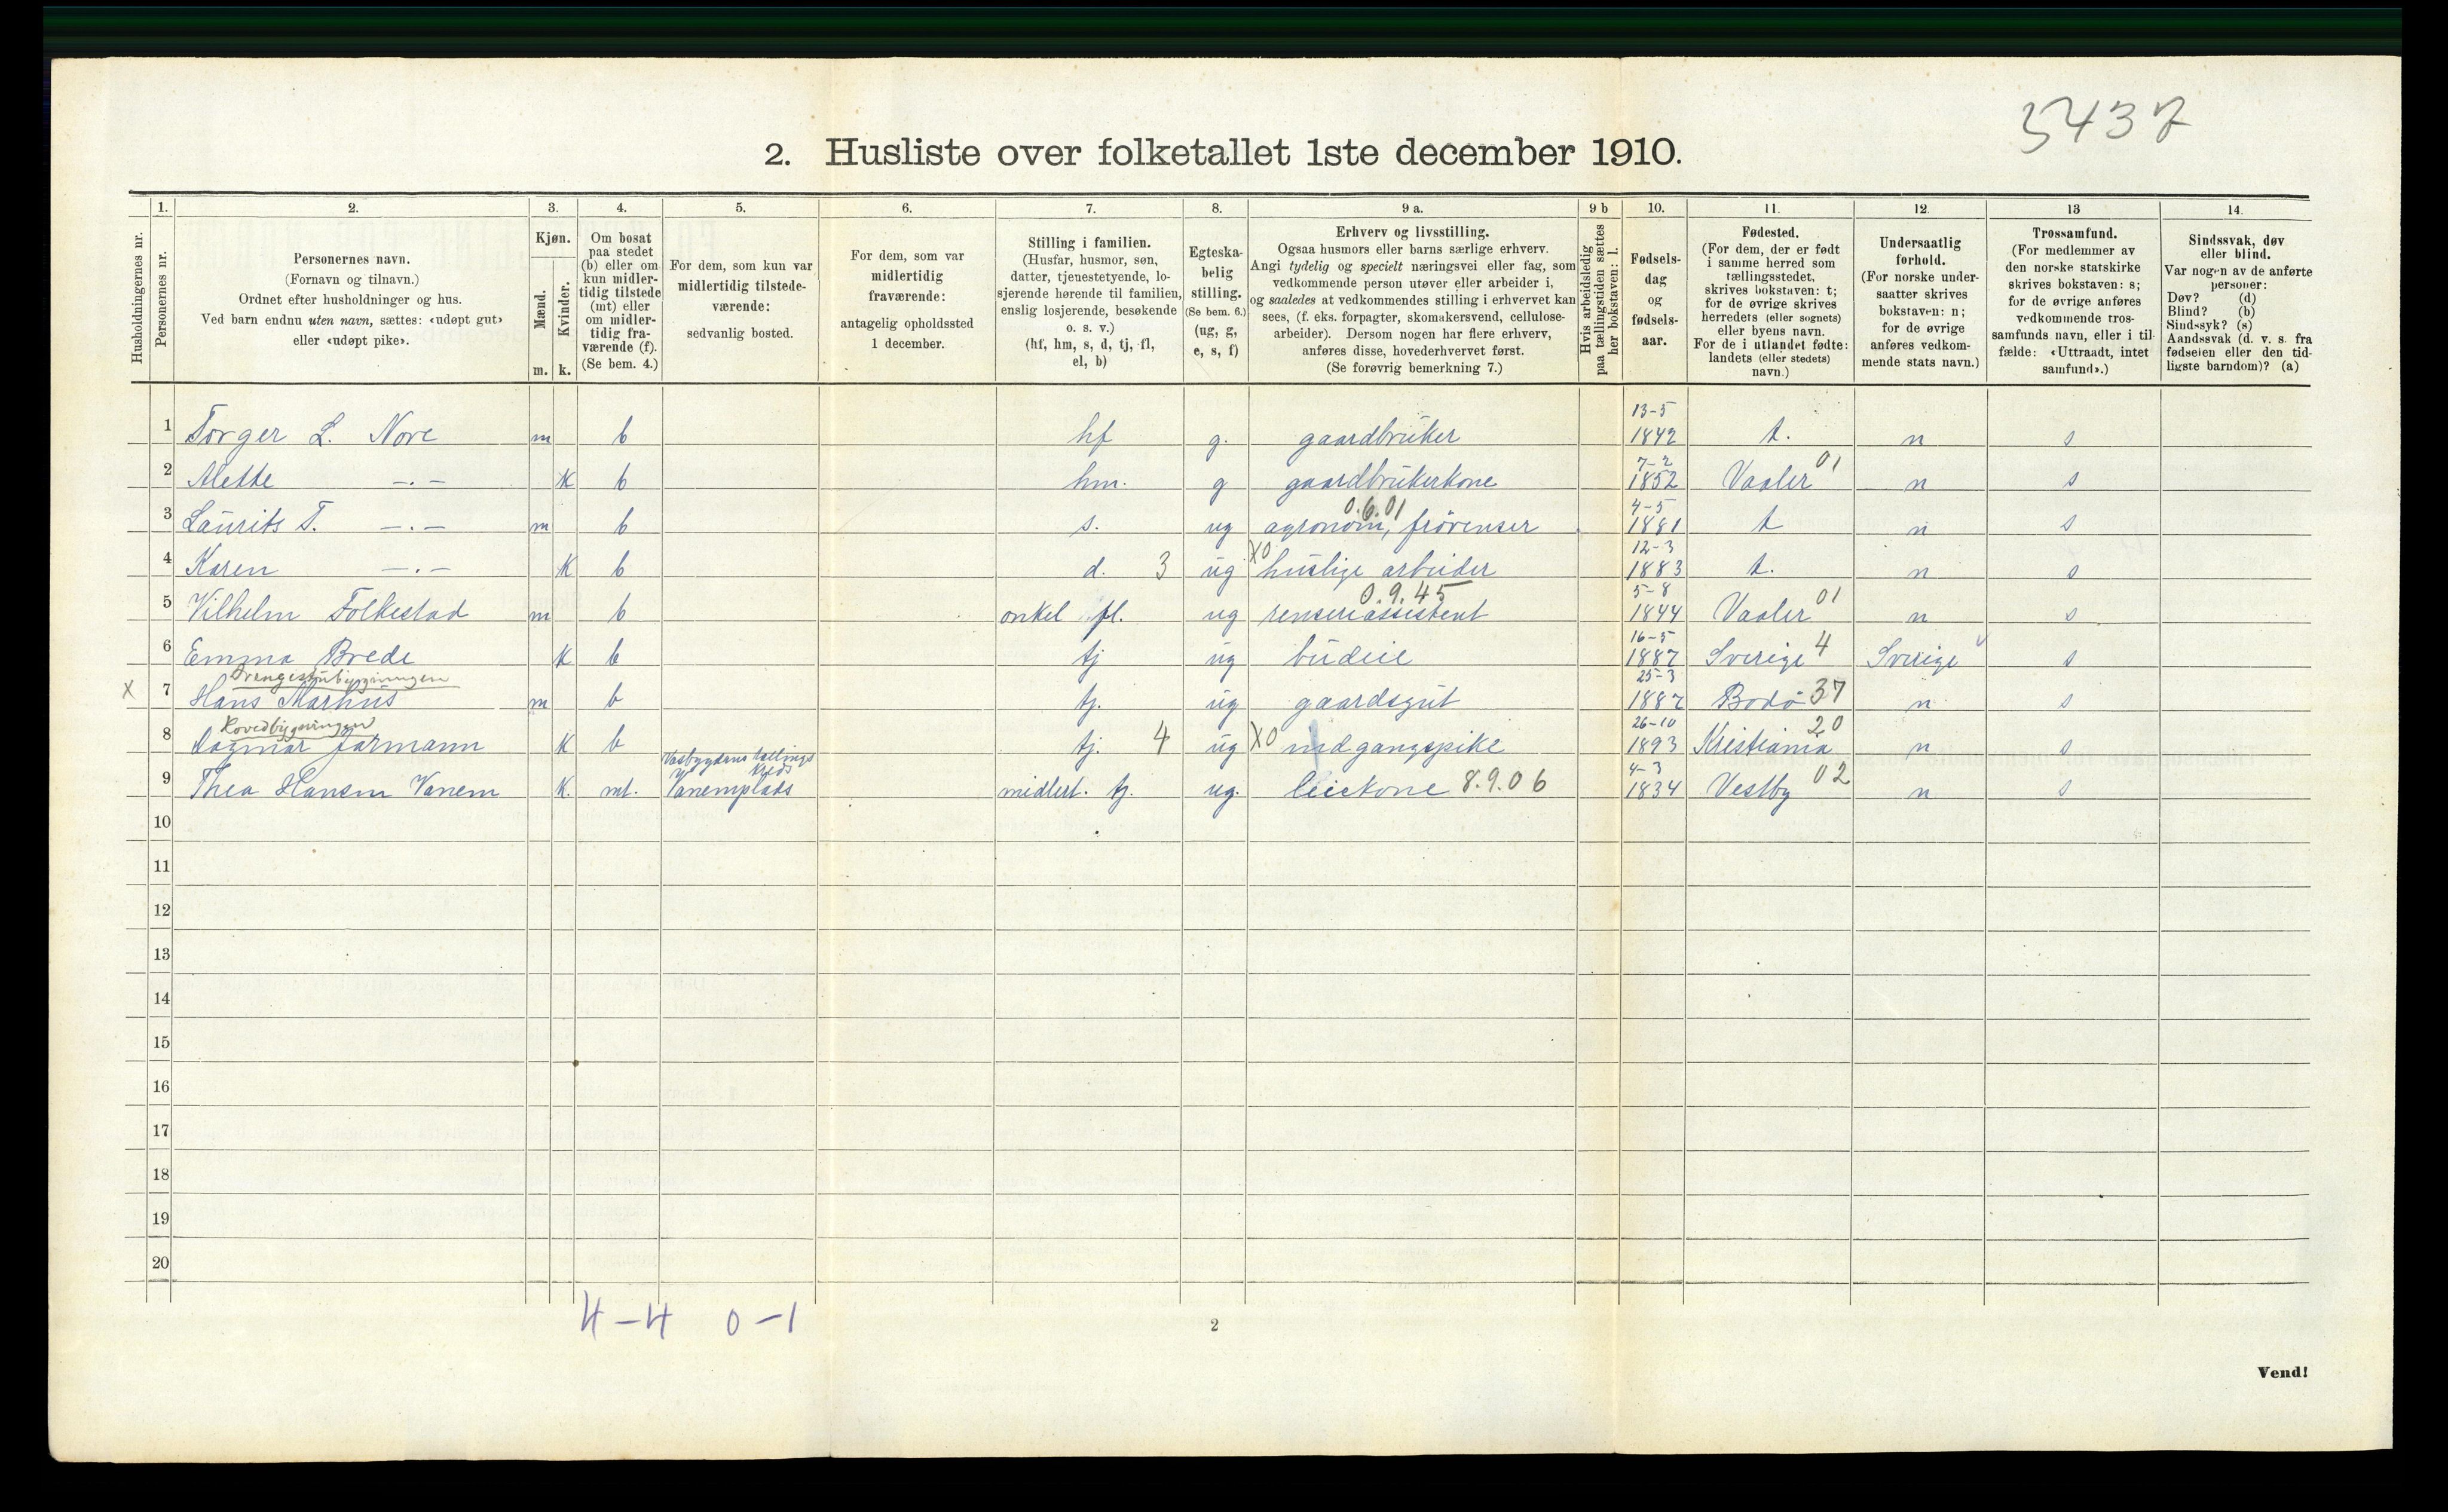 5437
2. Husliste over folketallet 1ste december 1910.
Husholdningernes nr.
1.
Personernes nr.
2.
Personernes navn.
(Fornavn og tilnavn.)
Ordnet efter husholdninger og hus.
Ved barn endnu uten navn, sættes: «udøpt gut»
eller «udøpt pike».
3.
Kjøn.
Mænd.
Kvinder.
m. k.
4.
Om bosat
paa stedet
(b) eller om
kun midler-
tidig tilstede
(mt) eller
om midler-
tidig fra-
værende (f).
(Se bem. 4.)
5.
For dem, som kun var
midlertidig tilstede-
værende:
sedvanlig bosted.
6.
For dem, som var
midlertidig
fraværende:
antagelig opholdssted
1 december.
7.
Stilling i familien.
(Husfar, husmor, søn,
datter, tjenestetyende, lo-
sjerende hørende til familien,
enslig losjerende, besøkende
o. s. v.)
(hf, hm, s, d, tj, fl,
el, b)
8.
Egteska-
belig
stilling.
(Se bem. 6.)
(ug, g,
e, s, f)
9 a.
Erhverv og livsstilling.
Ogsaa husmors eller barns særlige erhverv.
Angi tydelig og specielt næringsvei eller fag, som
vedkommende person utøver eller arbeider i,
og saaledes at vedkommendes stilling i erhvervet kan
sees, (f. eks. forpagter, skomakersvend, cellulose-
arbeider). Dersom nogen har flere erhverv,
anføres disse, hovederhvervet først.
(Se forøvrig bemerkning 7.)
9 b
Hvis arbeidsledig
paa tællingstiden sættes
her bokstaven: l.
10.
Fødsels-
dag
og
fødsels-
aar.
11.
Fødested.
(For dem, der er født
i samme herred som
tællingsstedet,
skrives bokstaven: t;
for de øvrige skrives
herredets (eller sognets)
eller byens navn.
For de i utlandet fødte:
landets (eller stedets)
navn.)
12.
Undersaatlig
forhold.
(For norske under-
saatter skrives
bokstaven: n;
for de øvrige
anføres vedkom-
mende stats navn.)
13
Trossamfund.
(For medlemmer av
den norske statskirke
skrives bokstaven: s;
for de øvrige anføres
vedkommende tros-
samfunds navn, eller i til-
fælde: «Uttraadt, intet
samfund».)
14.
Sindssvak, døv
eller blind.
Var nogen av de anførte
personer:
Døv? (d)
Blind? (b)
Sindssyk? (s)
Aandssvak (d. v. s. fra
fødselen eller den tid-
ligste barndom)? (a)
1 Torger L. Nore m b hf g. gaardbruker 13-5 1842 t. n s
2 Alette -.- k b hm. g gaardbrukerkone 7-2 1852 Vaaler 01 n s
3 Laurits T. -.- m b s. ug agronom, frövenser 0.6.01 4-5 1881 t n s
4 Karen -.- k b d. 3 ug X0 huslige arbeider 12-3 1883 t. n s
5 Vilhelm Folkestad m b onkel fl. ug renseriassistent 0.9.45 5-8 1844 Vaaler 01 n s
6 Emma Brede k b tj ug budeie 16-5 1887 Sverige 4 Sverige s
Drengestubygningen
X 7 Hans Markus m b tj. ug gaardsgut 25-3 1887 Bodö 37 n s
Hovedbygningen
8 Dagmar Jarmann k b tj. 4 ug X0 indgangspike 26-10 1893 Kristiania 20 n s
9 Thea Hansen Vanem k. mt. Vanemplads midlert. tj. ug. leiekone 8.9.06 4-3 1834 Vestby 02 n s
10
11
12
13
14
15
16
17
18
19
20
4-4 0-1
2
Vend!